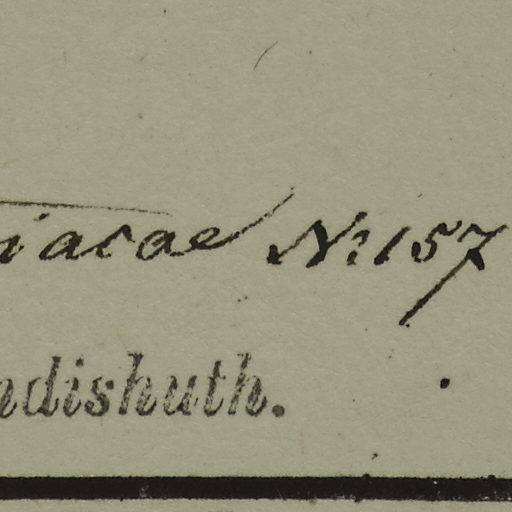 iacae No: 157
ndishuth.